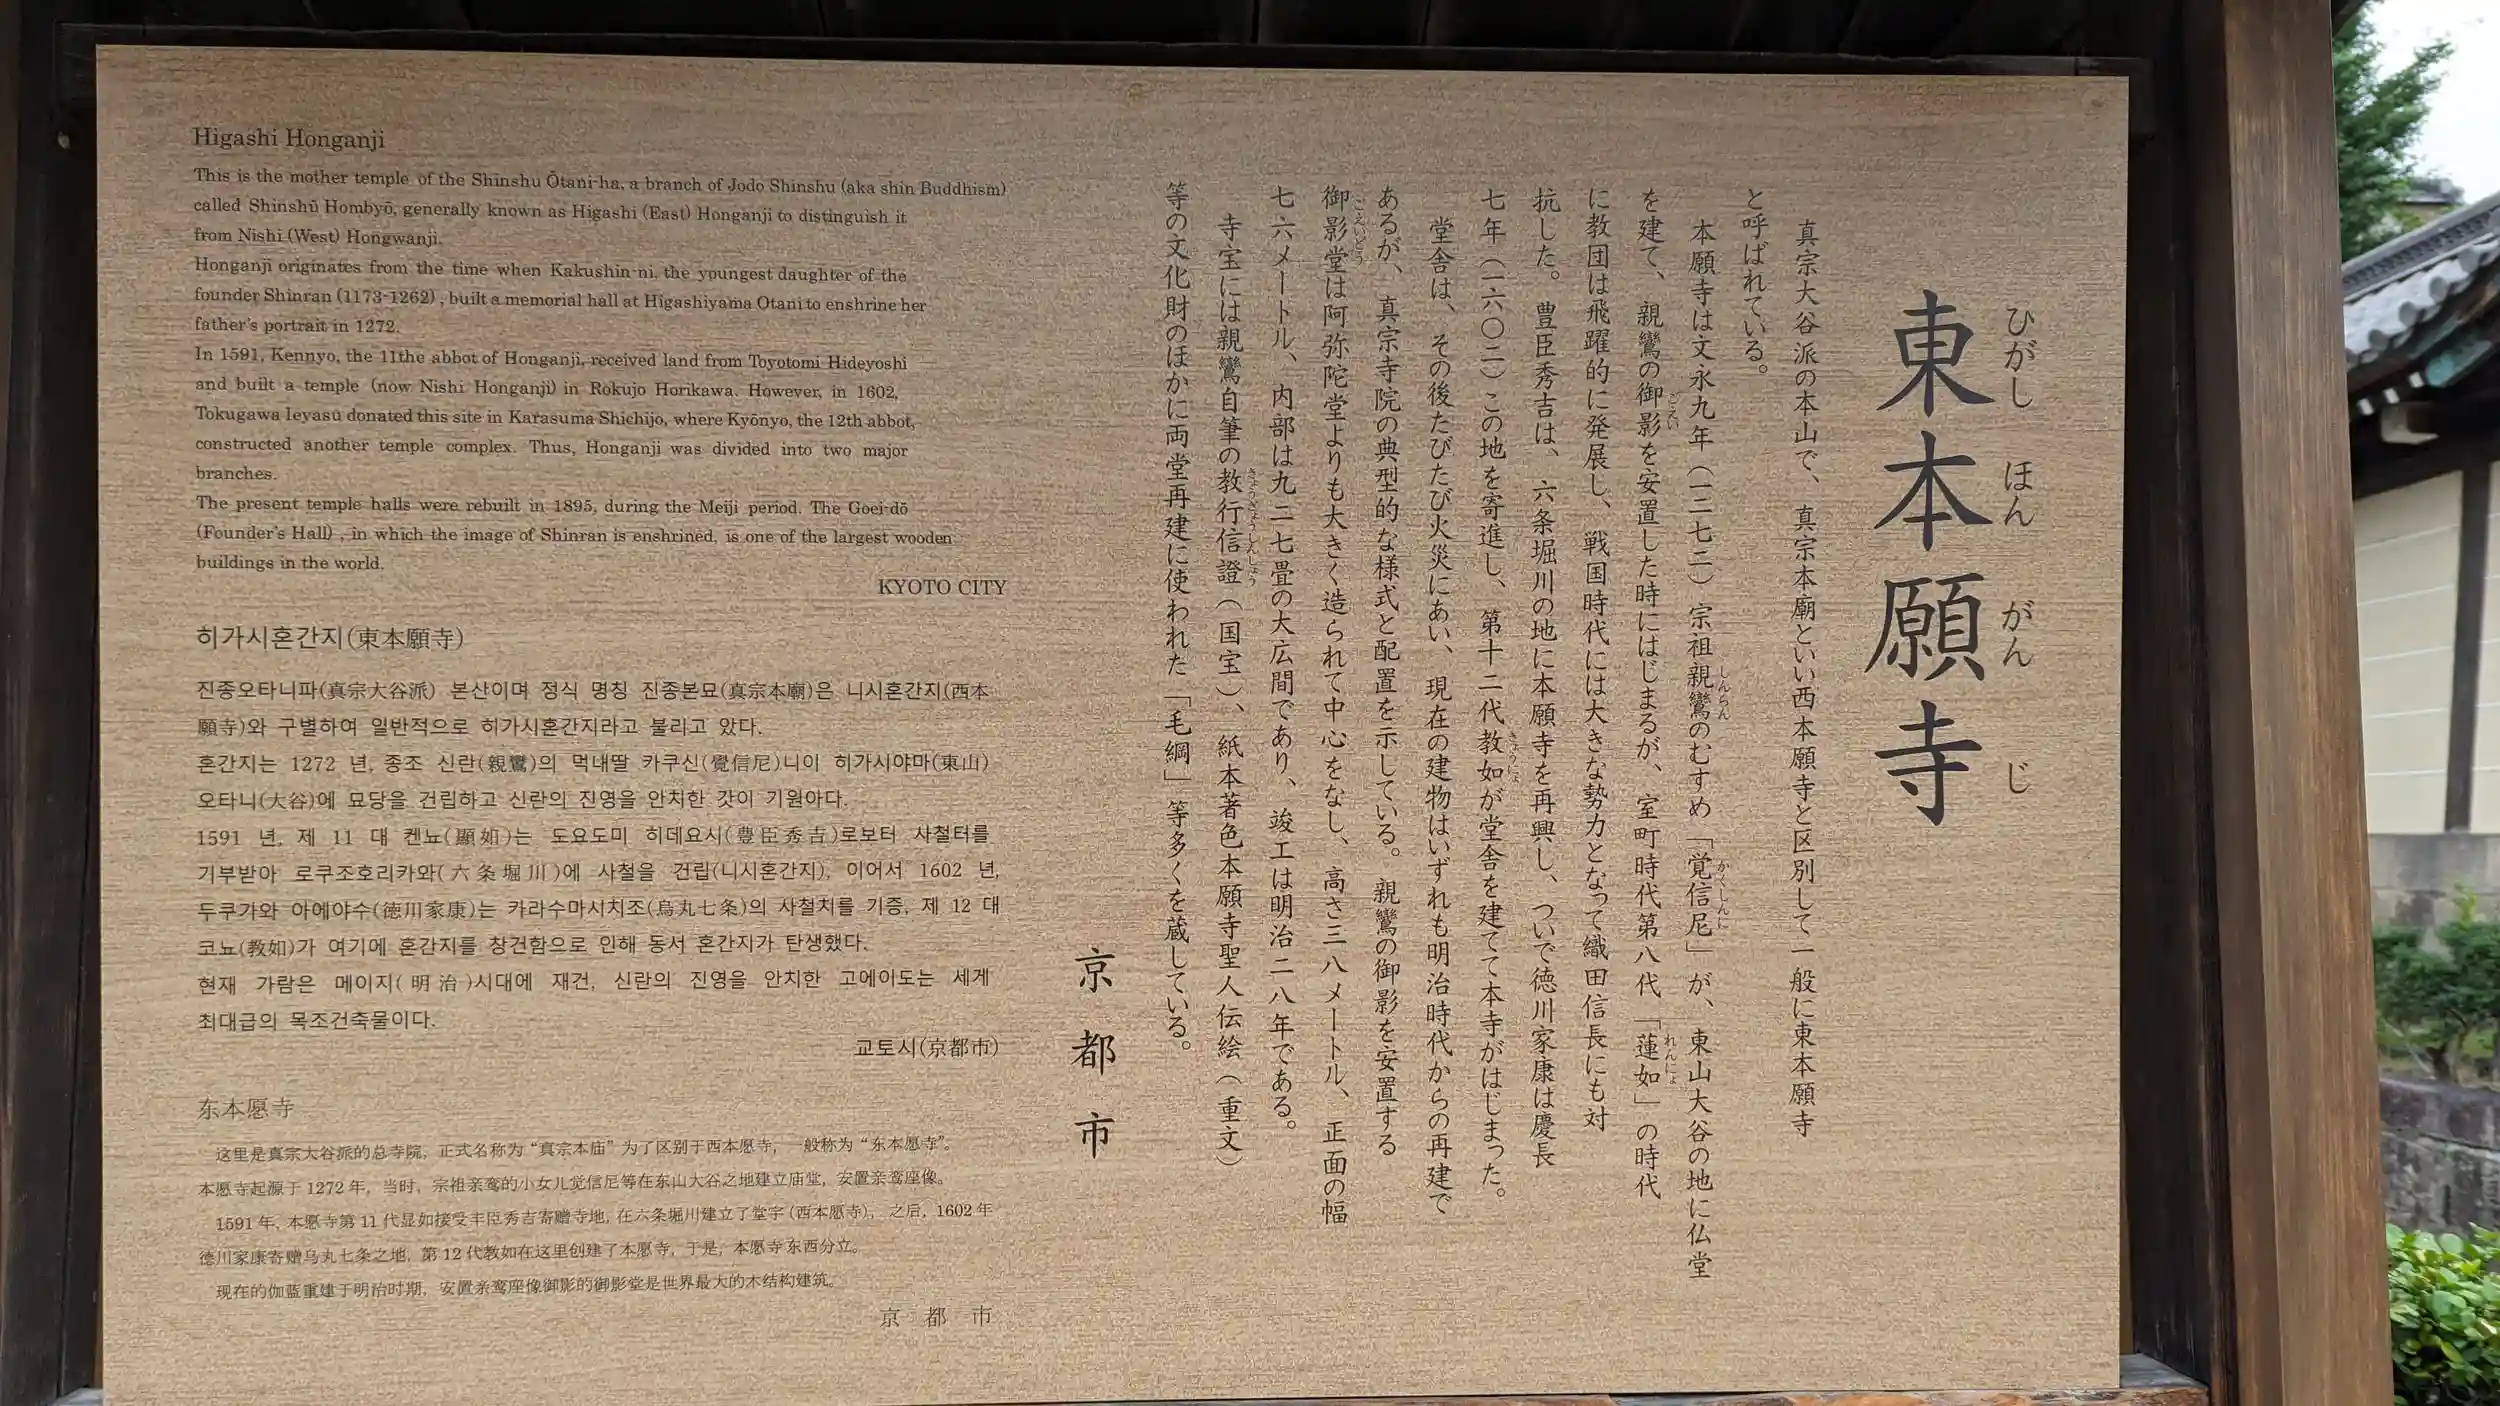 Higashi Honganji
This is the mother temple of the Shinshu Ōtani-ha, a branch of Jodo Shinshu (aka shin Buddhism)
called Shinshū Hombyō, generally known as Higashi (East) Honganji to distinguish it
from Nishi (West) Hongwanji.
Honganji originates from the time when Kakushin-ni, the youngest daughter of the
founder Shinran (1173-1262) , built a memorial hall at Higashiyama Otani to enshrine her
father's portrait in 1272.
In 1591, Kennyo, the 11the abbot of Honganji, received land from Toyotomi Hideyoshi
and built a temple (now Nishi Honganji) in Rokujo Horikawa. However, in 1602,
Tokugawa Ieyasu donated this site in Karasuma Shichijo, where Kyōnyo, the 12th abbot,
constructed another temple complex. Thus, Honganji was divided into two major
branches.
The present temple halls were rebuilt in 1895, during the Meiji period. The Goei-dō
(Founder's Hall) , in which the image of Shinran is enshrined, is one of the largest wooden
buildings in the world.
KYOTO CITY
히가시혼간지(東本願寺)
진종오타니파(真宗大谷派) 본산이며 정식 명칭 진종본묘(真宗本廟)은 니시혼간지(西本
願寺)와 구별하여 일반적으로 히가시혼간지라고 불리고 았다.
혼간지는 1272 년, 종조 신란(親鸞)의 먹내딸 카쿠신(覺信尼)니이 히가시야마(東山)
오타니(大谷)에 묘당을 건립하고 신란의 진영을 안치한 갓이 기원아다.
1591 년, 제 11 대 켄뇨(顯如)는 도요도미 히데요시(豊臣秀吉)로보터 사철터를
기부받아 로쿠조호리카와(六条堀川)에 사철을 건립(니시혼간지), 이어서 1602 년,
두쿠가와 아에야수(徳川家康)는 카라수마시치조(烏丸七条)의 사철치를 기증, 제 12 대
코뇨(教如)가 여기에 혼간지를 창건함으로 인해 동서 혼간지가 탄생했다.
현재 가람은 메이지(明治)시대에 재건, 신란의 진영을 안치한 고에이도는 세계
최대급의 목조건축물이다.
교토시(京都市)
东本愿寺
这里是真宗大谷派的总寺院，正式名称为“真宗本庙”为了区别于西本愿寺，一般称为“东本愿寺”。
本愿寺起源于 1272 年，当时，宗祖亲鸾的小女儿觉信尼等在东山大谷之地建立庙堂，安置亲鸾座像。
1591 年, 本愿寺第 11 代显如接受丰臣秀吉寄赠寺地, 在六条堀川建立了堂宇 (西本愿寺)，之后，1602 年
德川家康寄赠乌丸七条之地，第 12 代教如在这里创建了本愿寺，于是，本愿寺东西分立。
现在的伽蓝重建于明治时期，安置亲鸾座像御影的御影堂是世界最大的木结构建筑。
京都市
東本願寺
ひがし ほん がん じ
真宗大谷派の本山で、真宗本廟といい西本願寺と区別して一般に東本願寺
と呼ばれている。
本願寺は文永九年（一二七二）宗祖親鸞のむすめ「覚信尼」が、東山大谷の地に仏堂
しんらん かくしんに
を建て、親鸞の御影を安置した時にはじまるが、室町時代第八代「蓮如」の時代
ごえい れんにょ
に教団は飛躍的に発展し、戦国時代には大きな勢力となって織田信長にも対
抗した。豊臣秀吉は、六条堀川の地に本願寺を再興し、ついで徳川家康は慶長
七年（一六〇二）この地を寄進し、第十二代教如が堂舎を建てて本寺がはじまった。
きょうにょ
堂舎は、その後たびたび火災にあい、現在の建物はいずれも明治時代からの再建で
あるが、真宗寺院の典型的な様式と配置を示している。親鸞の御影を安置する
御影堂は阿弥陀堂よりも大きく造られて中心をなし、高さ三八メートル、正面の幅
ごえいどう
七六メートル、内部は九二七畳の大広間であり、竣工は明治二八年である。
寺宝には親鸞自筆の教行信證（国宝）、紙本著色本願寺聖人伝絵（重文）
きょうぎょうしんしょう
等の文化財のほかに両堂再建に使われた「毛綱」等多くを蔵している。
京都市